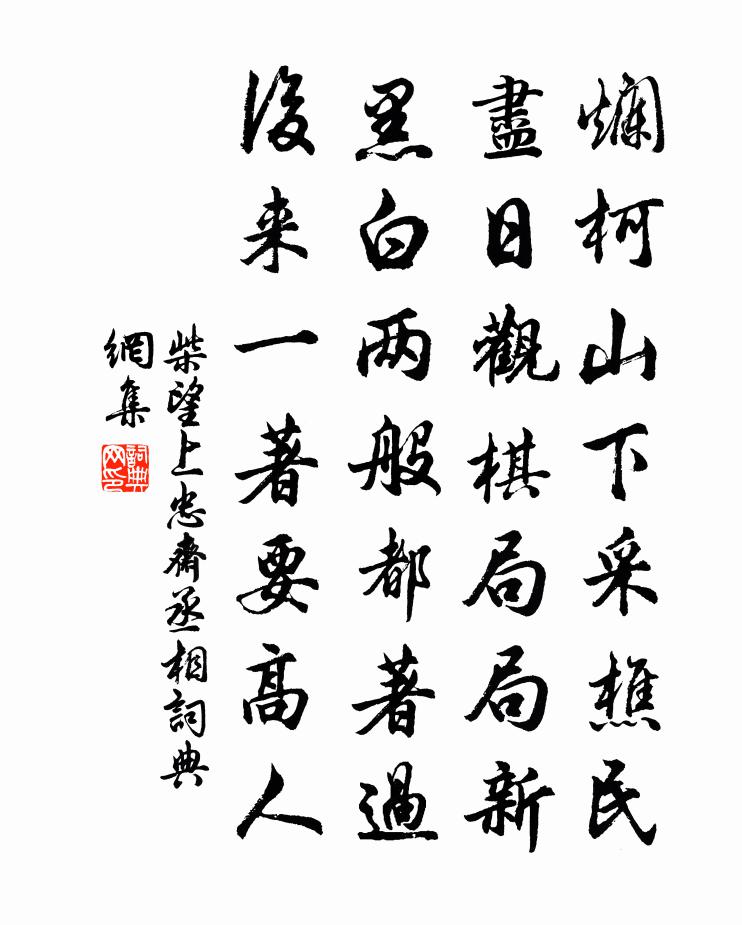 爛柯山下采樵民
盡日觀棋局局新
黑白两般都著過
後来一著要高人
柴望上忠齋丞相詞典
網集
詞典
网印